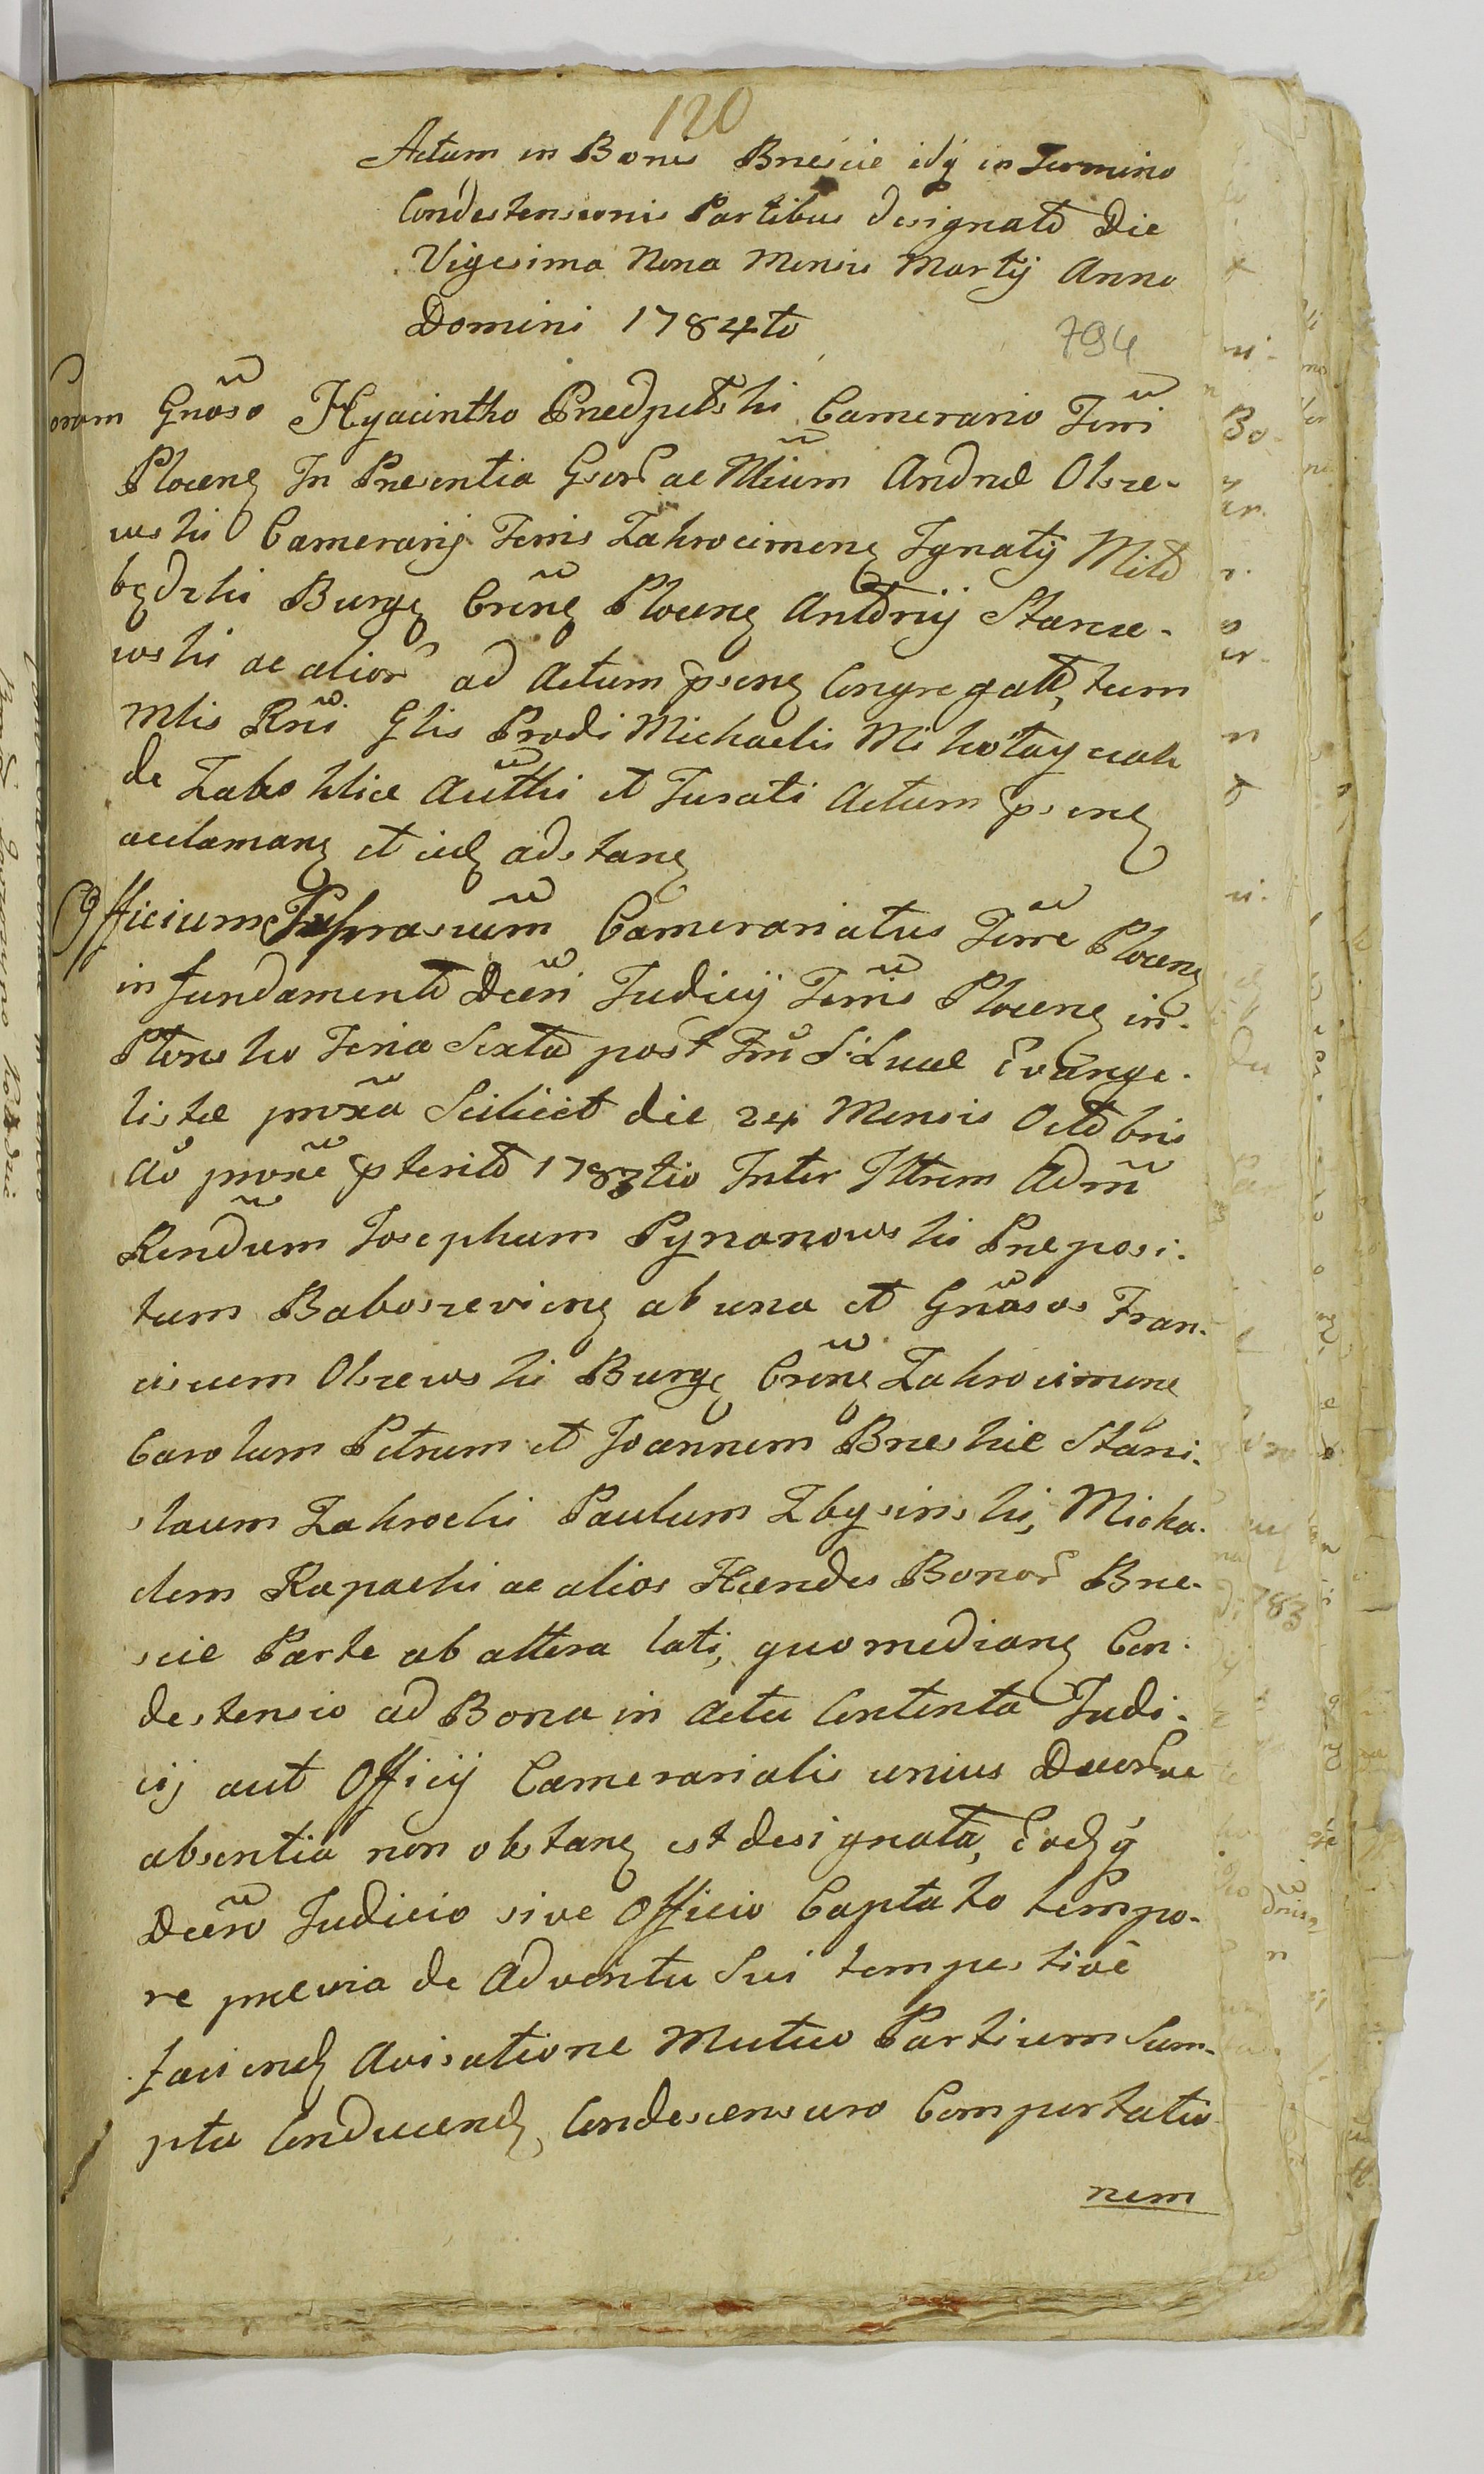 120
Actum in Bonis Brescie idq in Termino
Condestensionis Partibus designato Die
Vigesima Nona Mensis Martij Anno
Domini 1784to
794
Coram Gnoso Hyacintho Przedpełski Camerario Terri
Plocens In Presentia Gsor ac Nlium Andreæ Olsze-
wski Camerarij Terris Zakrocimens Ignatij Mito
będzki Burgs Crens Plocens Antonij Starcze-
wski ac alior ad Actum psens Congregato, tum
Mlis Rni Glis Prodi Michaelis Mikołayczak
de Authi et Jurati Actum psens
acclamans et eid adstans
Officium Camerariatus Terre Plocens
in fundamento Dceri Judicij Terris Plocens in
Plonsko Feria Sexta post Fm S. Lucæ Evange-
listæ proxa Scilicet die 24 Mensis Octobris
Ao proxe pterito 1783tio Inter Illrem Adm
Rendum Josephum Pyzanowski Preposi-
tum Baboszeviens ab una et Gnosos Fran-
ciscum Olszewski Burgs Crens Zakrocimens
Carolum Petrum et Joannem Breskie Stani-
slaum Zakrocki Paulum Zbysinski, Micha-
elem Rapacki ac alios Hæredes Bonor Bre-
scie Parte ab altera lati, quo medians Con-
destensio ad Bona in Actu Contenta Judi-
cij aut Officij Camerarialis unius Duorve
absentia non obstans est designata, Eodq
Dcero Judicio sive Officio Captato tempo-
re prævia de Adventu Sui tempestivè
faciend Avisatione Mutuo Partium Sum-
ptu Conducend, Condescensuro Comportatio-
nem